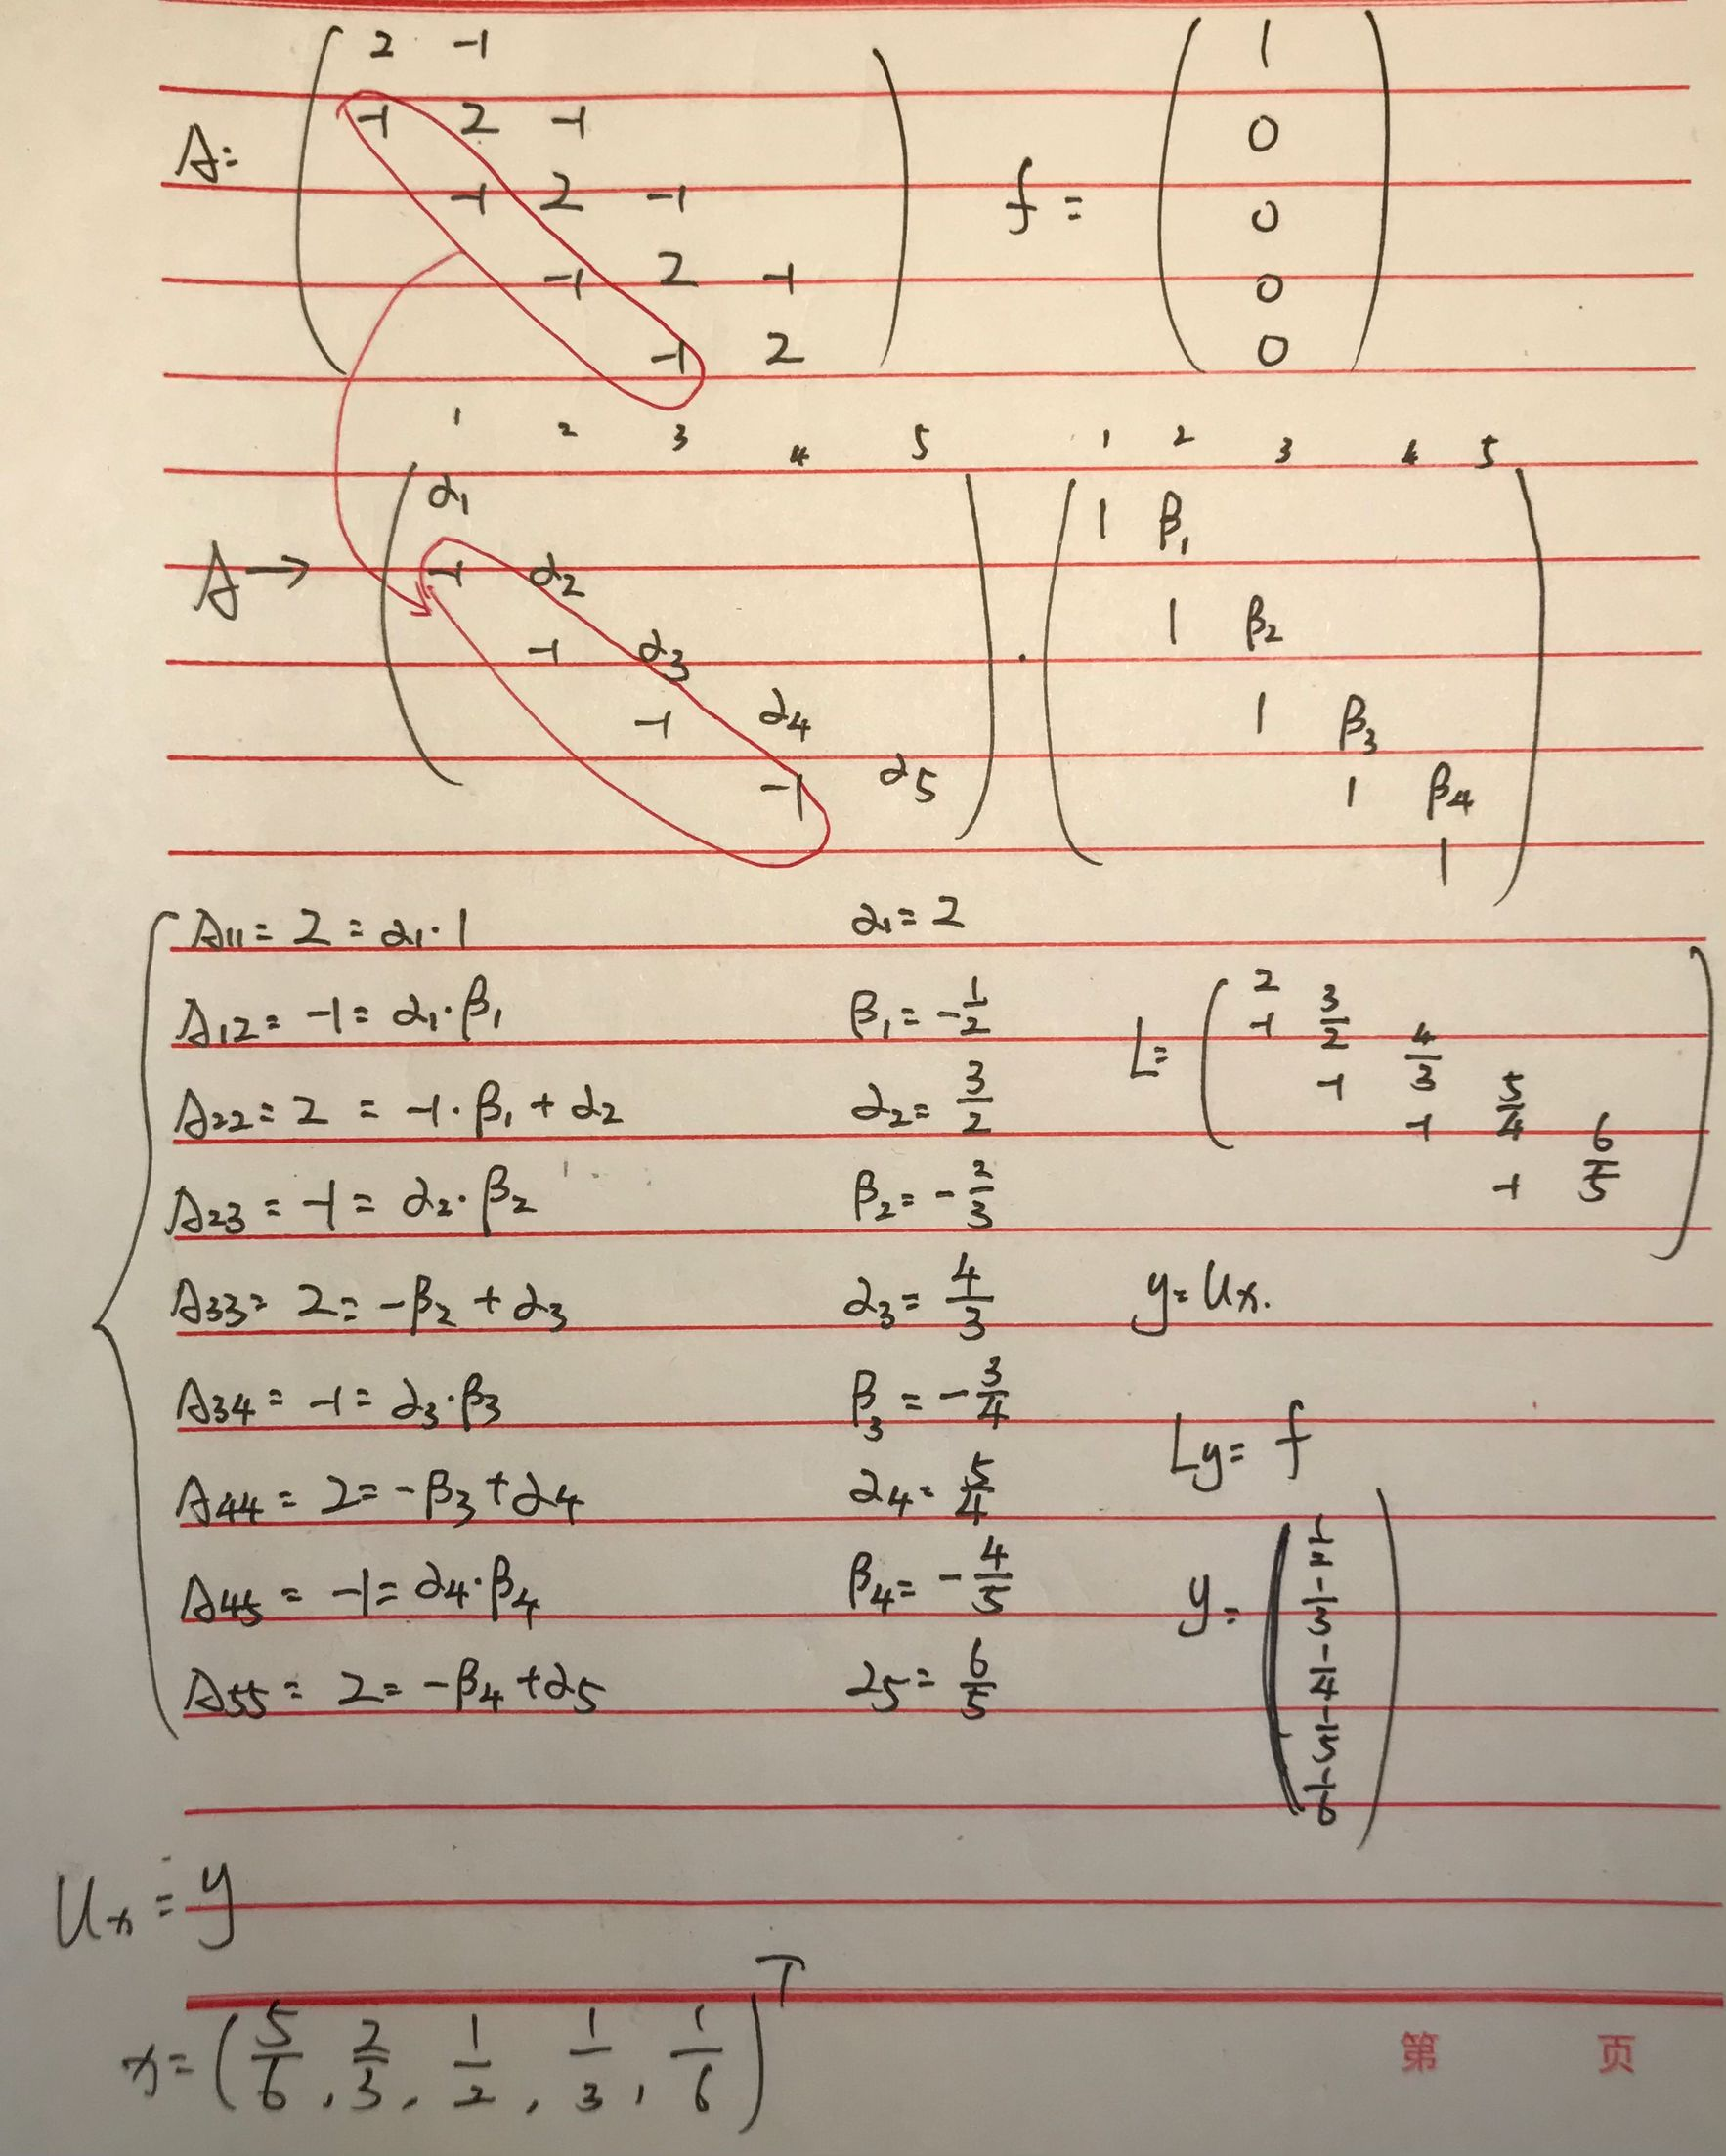 2 -1
-1 2 -1
A= -1 2 -1 f =
-1 2 -1
-1 2
1
0
0
0
0
1 2 3 4 5 1 2 3 4 5
α1 1 β1
A→ -1 α2 1 β2
-1 α3 · 1 β3
-1 α4 1 β4
-1 α5 1
A11= 2 = α1·1 α1= 2
A12= -1= α1·β1 β1= -1/2
A22= 2 = -1·β1 + α2 α2= 3/2
A23= -1= α2·β2 β2= -2/3
A33= 2= -β2 + α3 α3= 4/3
A34= -1= α3·β3 β3= -3/4
A44= 2= -β3+α4 α4= 5/4
A45= -1= α4·β4 β4= -4/5
A55= 2= -β4+α5 α5= 6/5
L=
2
-1 3/2
-1 4/3
-1 5/4
-1 6/5
y= Ux.
Ly= f
y=
1/2
1/3
1/4
1/5
1/6
Ux = y
x= (5/6, 2/3, 1/2, 1/3, 1/6)T
第 页